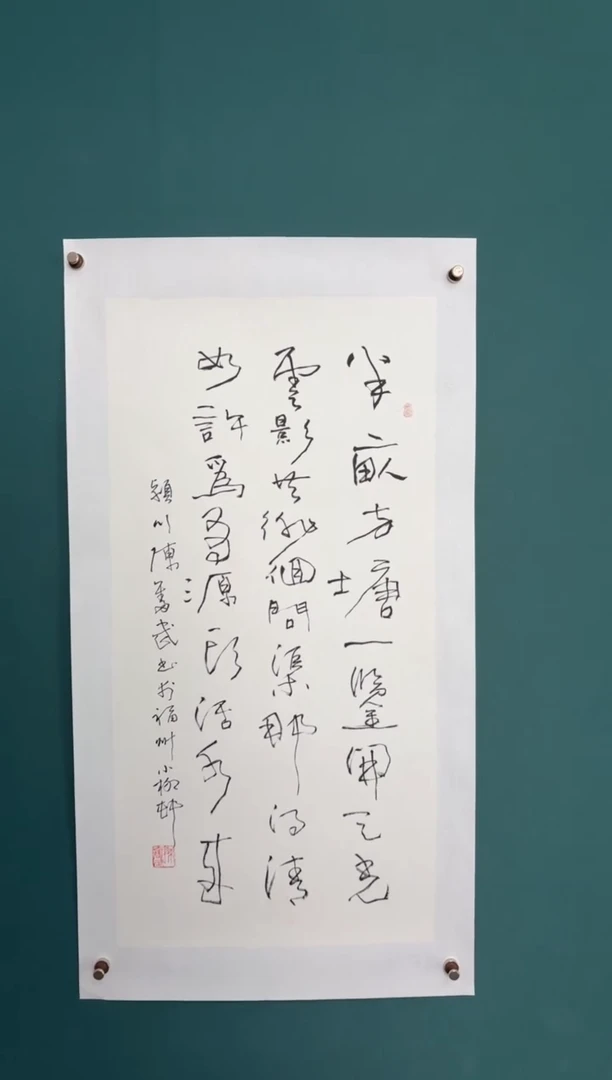 半畝方塘一鑒開天光
雲影共徘徊問渠那得清
如許爲有源頭活水來
潁川陳奮武書於福州小柳邨